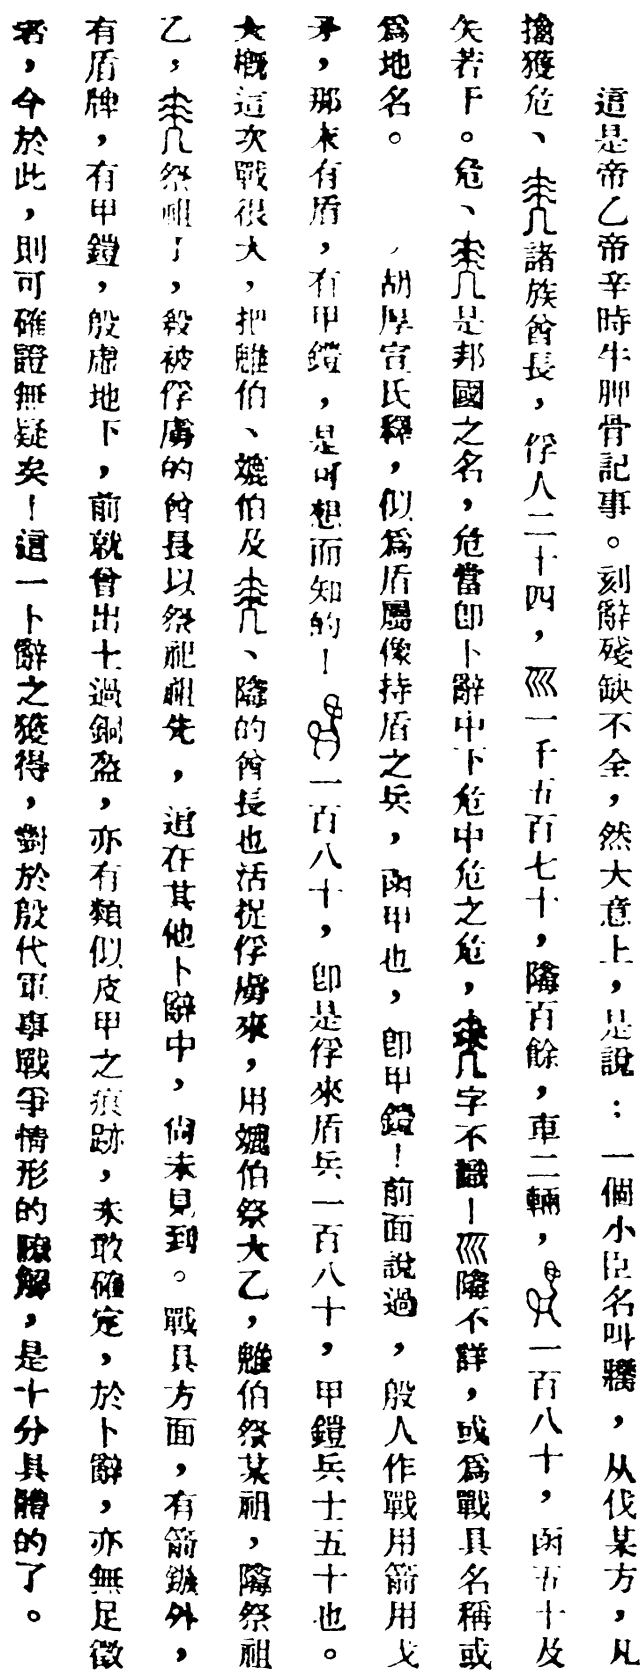 這是帝乙帝辛時牛胛骨記事。刻辭殘缺不全，然大意上，是說：一個小臣名叫牆，从伐某方，凡
擒獲危、諸族酋長，俘人二十四，巛一千五百七十，隓百餘，車二輛，一百八十，函五十及
矢若干。危、是邦國之名，危當即卜辭中下危中危之危，字不識！巛隓不詳，或爲戰具名稱或
爲地名。，胡厚宣氏釋，似爲盾屬像持盾之兵，函甲也，即甲鎧！前面說過，殷人作戰用箭用戈
矛，那末有盾，有甲鎧，是可想而知的！一百八十，即是俘來盾兵一百八十，甲鎧兵士五十也。
大槪這次戰很大，把雝伯、伯及、隓的酋長也活捉俘虜來，用伯祭大乙，雝伯祭某祖，隓祭祖
乙，祭祖丁，殺被俘虜的酋長以祭祀祖先，這在其他卜辭中，尙未見到。戰具方面，有箭鏃外，
有盾牌，有甲鎧，殷虛地下，前就曾出土過銅盔，亦有類似皮甲之痕跡，未敢確定，於卜辭，亦無足徵
者，今於此，則可確證無疑矣！這一卜辭之獲得，對於殷代軍事戰爭情形的瞭解，是十分具體的了。